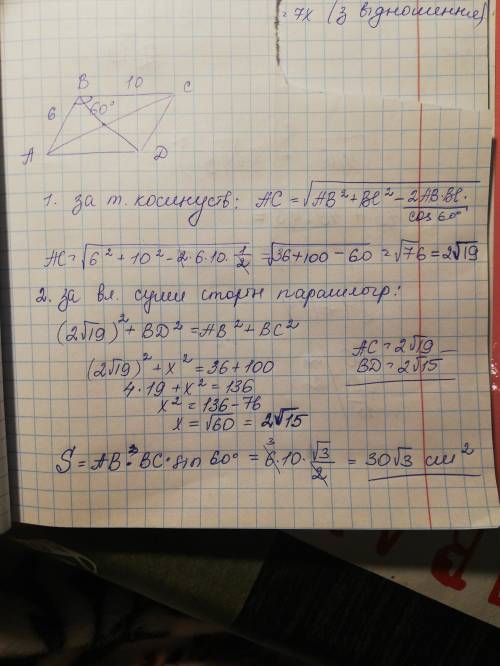 = 7x (з відношення)
B 10 C
6 60°
A D
1. за т. косинусів: AC = √AB² + BC² - 2AB·BC·
cos 60°
AC = √6² + 10² - 2·6·10·1/2 = √36+100-60 = √76 = 2√19
2. за вл. суми сторін паралелогр:
(2√19)² + BD² = AB² + BC²
(2√19)² + x² = 36 + 100
4·19 + x² = 136
x² = 136 - 76
x = √60 = 2√15
AC = 2√19
BD = 2√15
S = AB · BC · sin 60° = 6·10·√3/2 = 30√3 см²
3